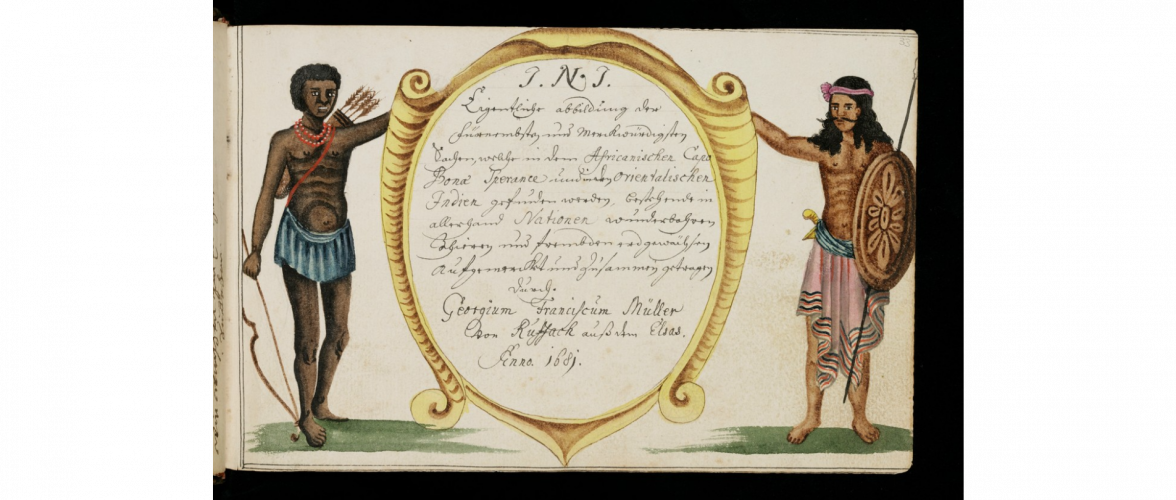 J. N. J.
Eigentliche abbildung der
fürnembsten und Merckwürdigsten
Sachen, welche in dem Africanischen Capo
Bonæ Sperance und in den Orientalischen
Indien gefunden werden, bestehende in
allerhand Nationen wunderbahren
Thieren und frembden erdgewächsen
Aufgemerckt und Zusammen getragen
durch.
Georgium Franciscum Müller
Von Ruffach auß dem Elsas.
Anno. 1681.